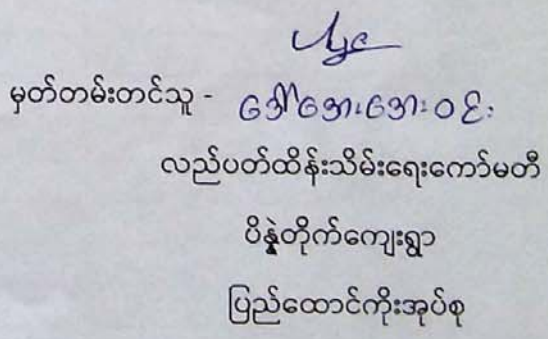 မှတ်တမ်းတင်သူ - ဒေါ်အေးအေးဝင်း
လည်ပတ်ထိန်းသိမ်းရေးကော်မတီ
ပိန္နဲတိုက်ကျေးရွာ
ပြည်ထောင်ကိုးအုပ်စု